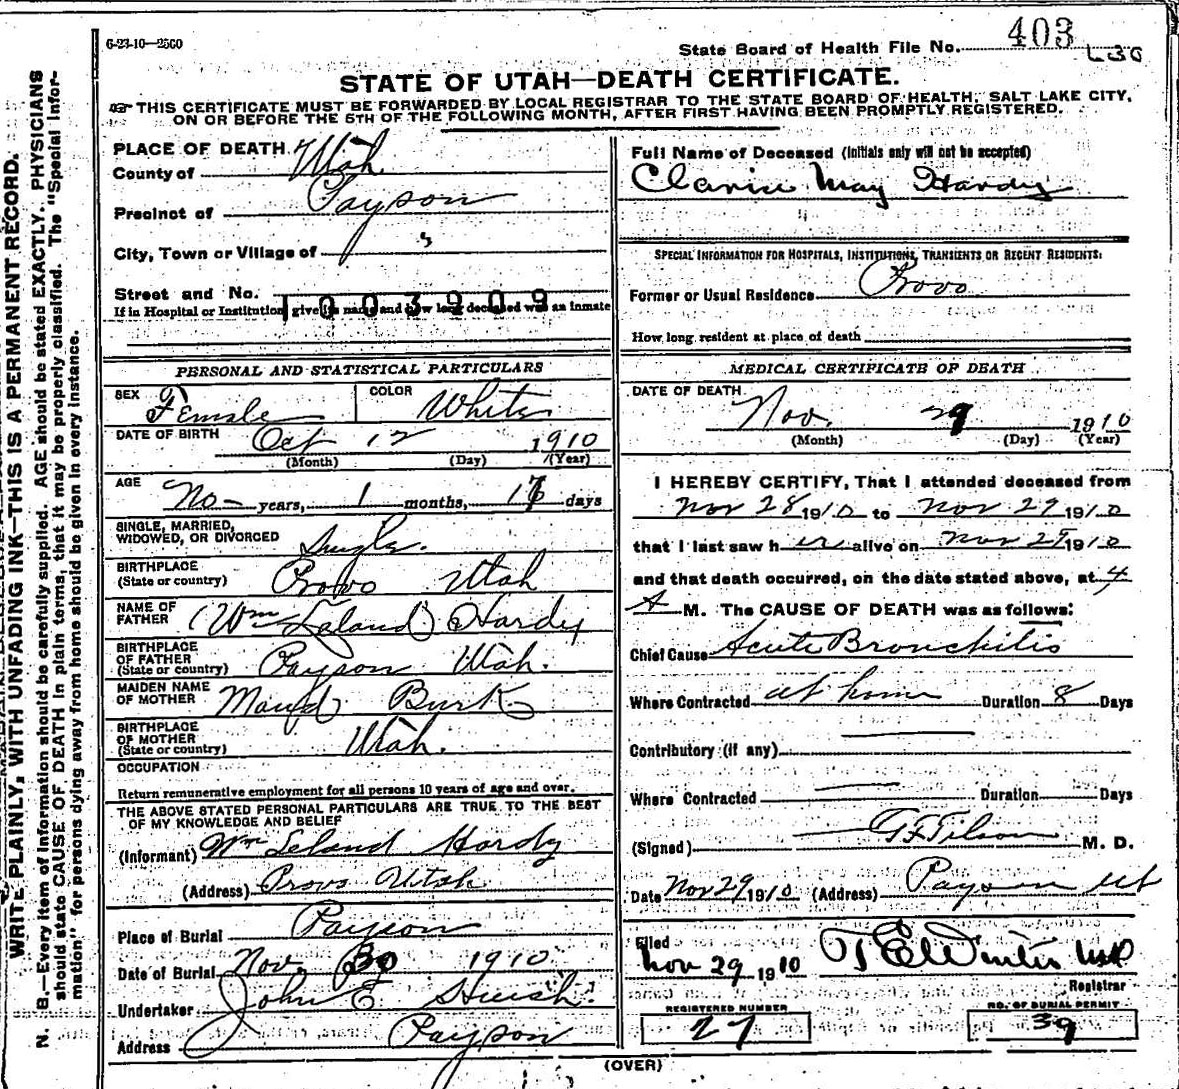 6-23-10—2500
State Board of Health File No. 403
STATE OF UTAH—DEATH CERTIFICATE.
THIS CERTIFICATE MUST BE FORWARDED BY LOCAL REGISTRAR TO THE STATE BOARD OF HEALTH, SALT LAKE CITY,
ON OR BEFORE THE 5TH OF THE FOLLOWING MONTH, AFTER FIRST HAVING BEEN PROMPTLY REGISTERED.
WRITE PLAINLY, WITH UNFADING INK—THIS IS A PERMANENT RECORD.
N. B.—Every item of information should be carefully supplied. AGE should be stated EXACTLY. PHYSICIANS
should state CAUSE OF DEATH in plain terms, that it may be properly classified. The "Special Infor-
mation" for persons dying away from home should be given in every instance.
PLACE OF DEATH.
County of Utah
Precinct of Payson
City, Town or Village of
Street and No.
1003909
If in Hospital or Institution, give its name and how long deceased was an inmate
PERSONAL AND STATISTICAL PARTICULARS
SEX Female COLOR White
DATE OF BIRTH Oct 12 1910
(Month) (Day) (Year)
AGE No years, 1 months, days
SINGLE, MARRIED,
WIDOWED, OR DIVORCED Single.
BIRTHPLACE
(State or country) Provo Utah
NAME OF
FATHER Wm Leland Hardy
BIRTHPLACE
OF FATHER
(State or country) Payson Utah.
MAIDEN NAME
OF MOTHER Maud Burk
BIRTHPLACE
OF MOTHER
(State or country) Utah.
OCCUPATION
Return remunerative employment for all persons 10 years of age and over.
THE ABOVE STATED PERSONAL PARTICULARS ARE TRUE TO THE BEST
OF MY KNOWLEDGE AND BELIEF
(Informant) Wm Leland Hardy
(Address) Provo Utah
Place of Burial Payson
Date of Burial Nov. 30 1910
Undertaker John E. Huish.
Address Payson
Full Name of Deceased (Initials only will not be accepted)
Clarice May Hardy
SPECIAL INFORMATION FOR HOSPITALS, INSTITUTIONS, TRANSIENTS OR RECENT RESIDENTS:
Former or Usual Residence Provo
How long resident at place of death
MEDICAL CERTIFICATE OF DEATH
DATE OF DEATH
Nov. 29 1910
(Month) (Day) (Year)
I HEREBY CERTIFY, That I attended deceased from
Nov 28 1910 to Nov 29 1910
that I last saw her alive on Nov 29 1910
and that death occurred, on the date stated above, at 4
A M. The CAUSE OF DEATH was as follows:
Chief Cause Acute Bronchitis
Where Contracted at home Duration 8 Days
Contributory (if any)
Where Contracted Duration Days
(Signed) G F Tilson M. D.
Date Nov 29 1910 (Address) Payson Ut
Filed
Nov 29 1910 T E Winter
Registrar
REGISTERED NUMBER
27
NO. OF BURIAL PERMIT
39
(OVER)